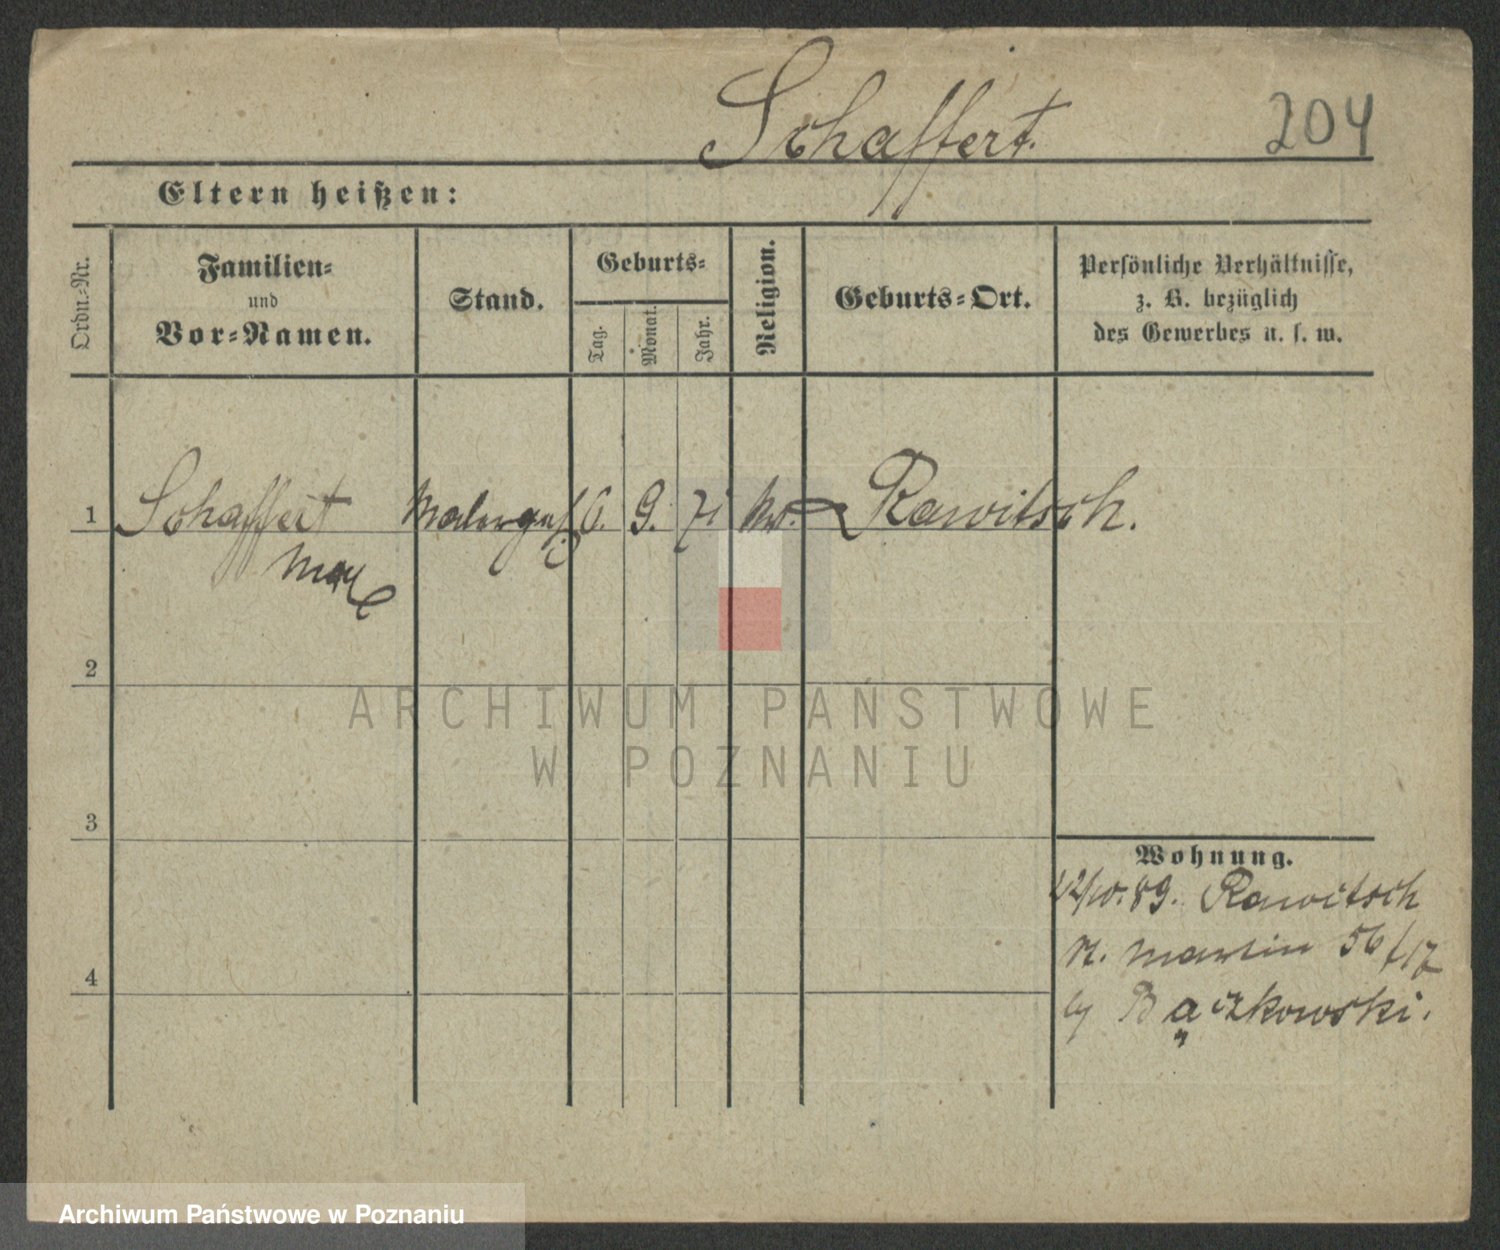 Schaffert.
204
Eltern heißen:
Ordn.-Nr.
Familien-
und
Vor-Namen.
Stand.
Geburts-
Tag.
Monat.
Jahr.
Religion.
Geburts-Ort.
Persönliche Verhältnisse,
z. B. bezüglich
des Gewerbes u. s. w.
1 Schaffert Malergeh. 6. 9. 71 Rawitsch.
Max
2
ARCHIWUM PAŃSTWOWE
W POZNANIU
3
Wohnung.
89. Rawitsch
St. Martin 56/17
4
by Bączkowski.
Archiwum Państwowe w Poznaniu